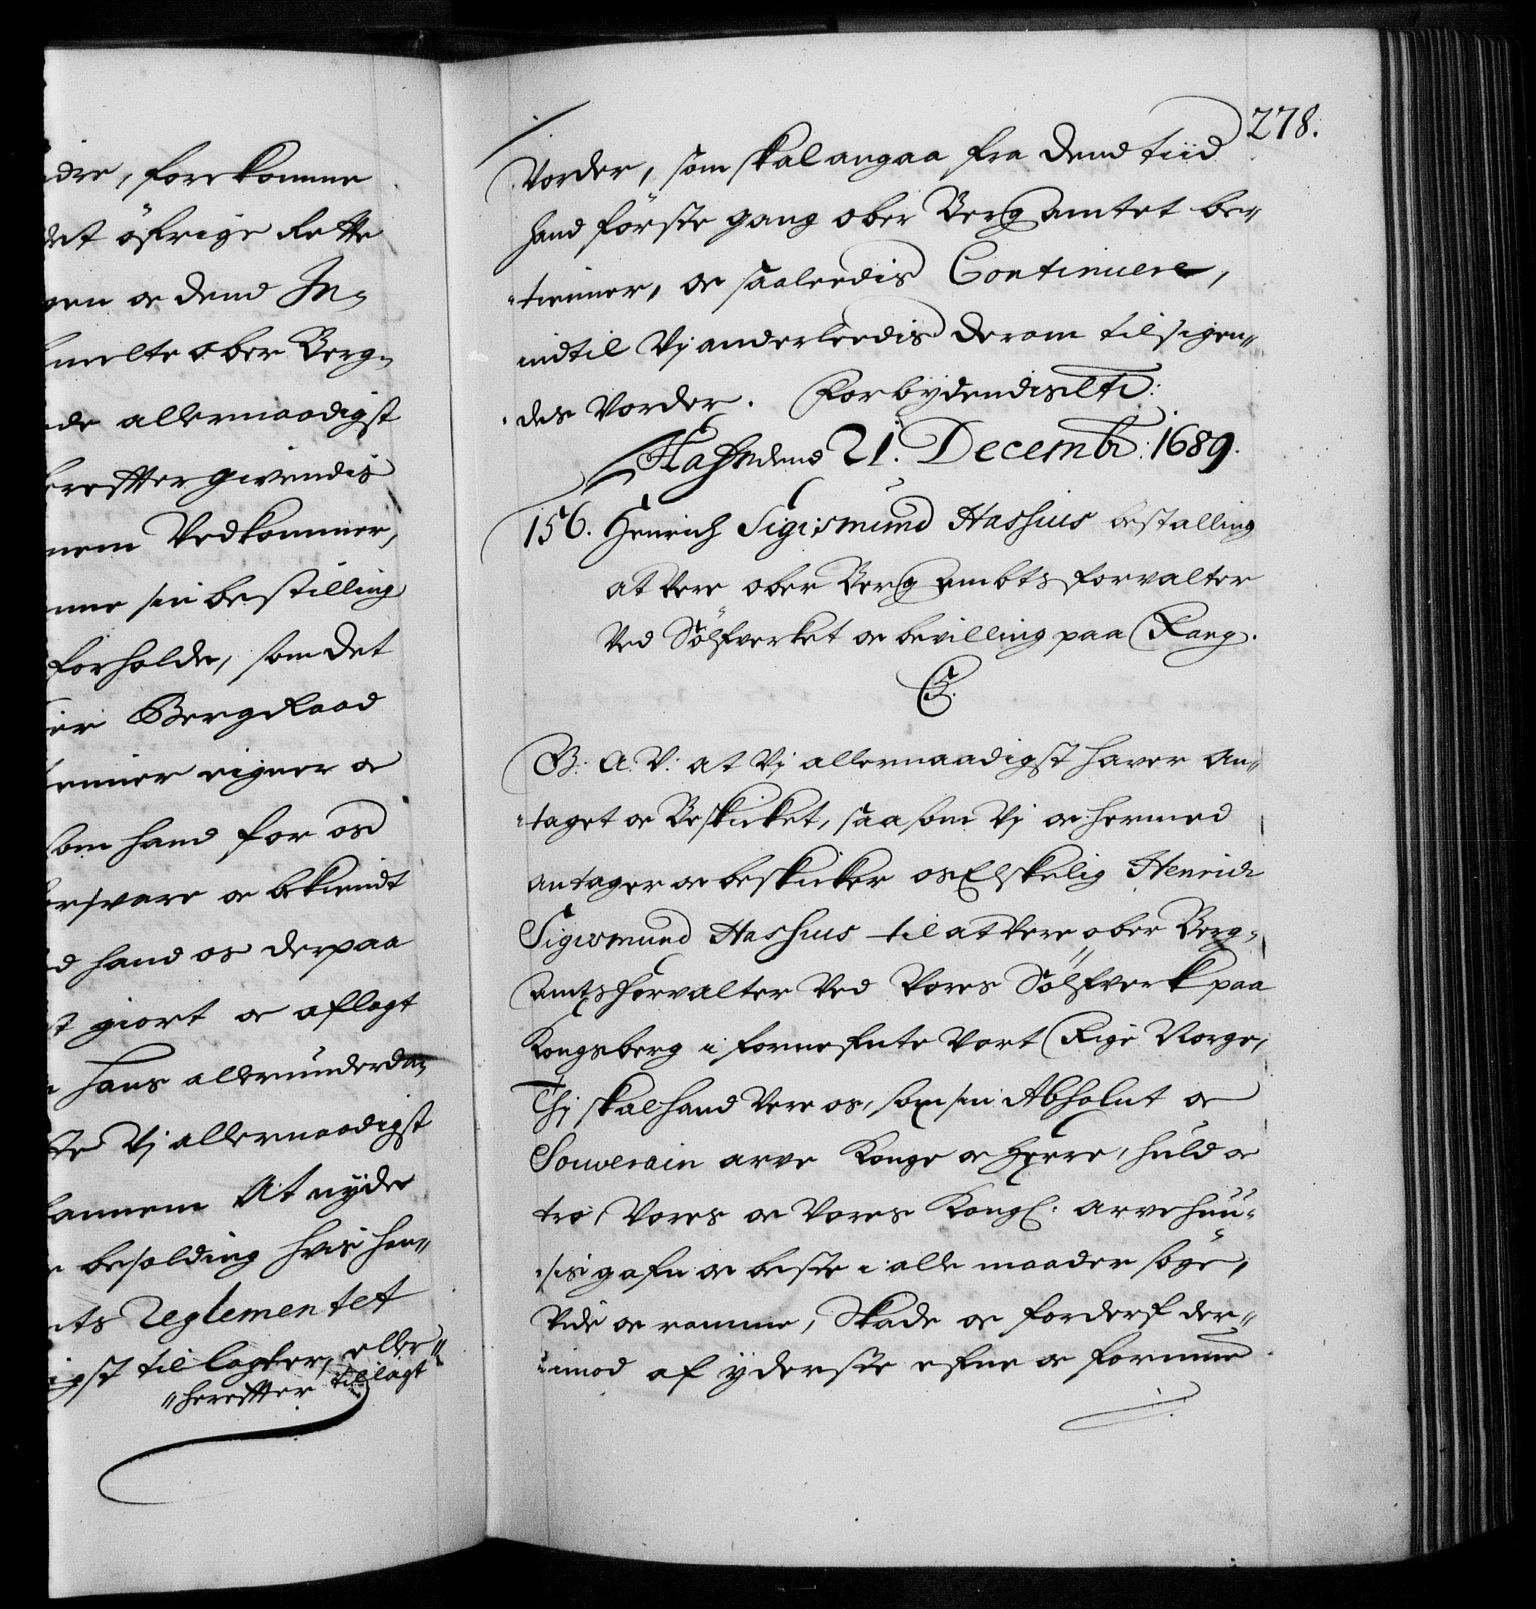 dre, forekomme
det öfrige Rette
gen oc dend In-
melte ober Berg-
de allernaadigst
ereffter givendis
nem Vedkommer,
nne sin bestilling
forholde, som det
ier BergRaad
tenner eigner oc
som hand for os
forsvare oc bekiendt
d hand os derpaa
giort oc aflagt
Hans allerunderda-
Vj allernaadigst
annem At nyde
besolding hvis han-
nts Reglementet
igst tillagter, eller
hereffter tillagt
278.
Vorder, som skal angaa fra dend tiid
hand förste gang ober Bergamtet be-
tienner, oc saaleedis Continuere,
indtil Vj anderleedis derom tilsigen-
des Vorder. Forbydendis etc:
Hafn dend 21. Decembr: 1689.
156. Henrich Sigismund Hashius bestalling
at Vere ober Berg ambts forvalter
Ved Sölfverket oc bevilling paa Rang.
C5.
G: A: V: at Vj allernaadigst haver An-
taget oc Beskicket, saasom Vj oc hermed
antager oc beskicker os Elskelig Henrich
Sigismund Hashius til at Vere ober Berg-
Amts forvalter Ved Vores Sölfverk paa
Kongsberg i fornefnte Vort Rige Norge,
Thj skal hand Vere os, som sin Absolut oc
Souverain arve Konge oc Herre, huld oc
tro, Vores oc Vores Kongl: arvehuu-
sis gafn oc beste i alle maader söge,
Vide oc ramme, Skade oc forderf der-
imod af yderste efne oc formue